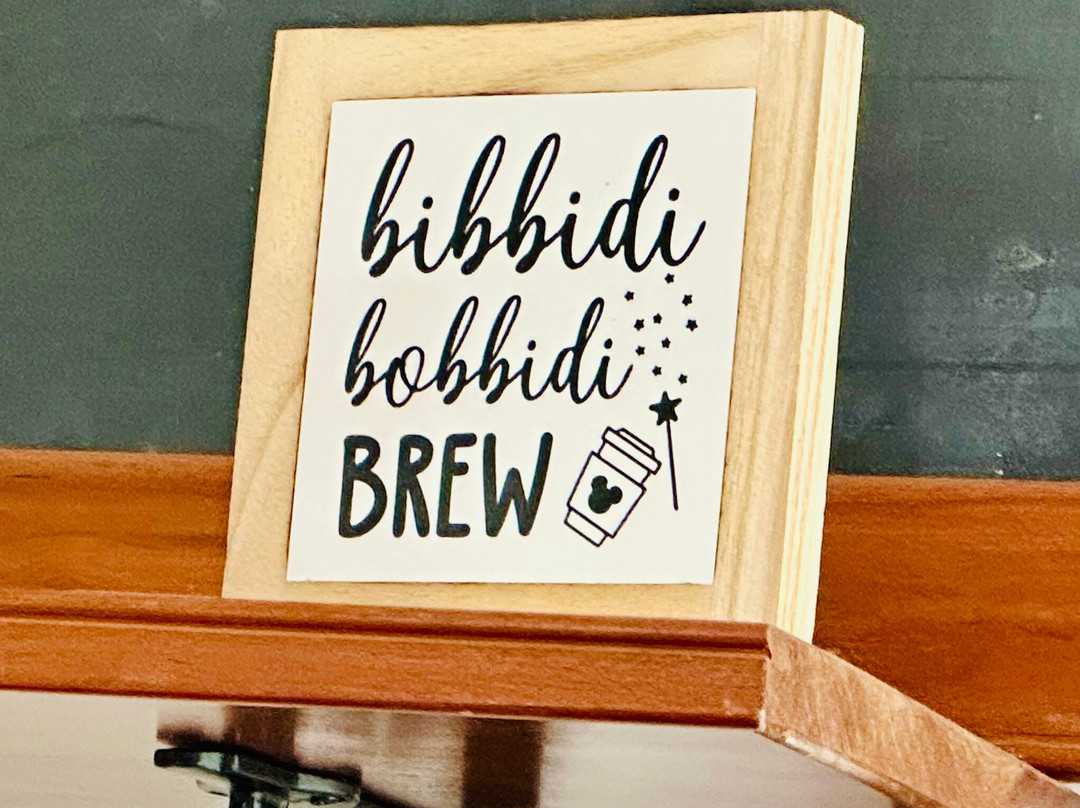 bibbidi
bobbidi
BREW